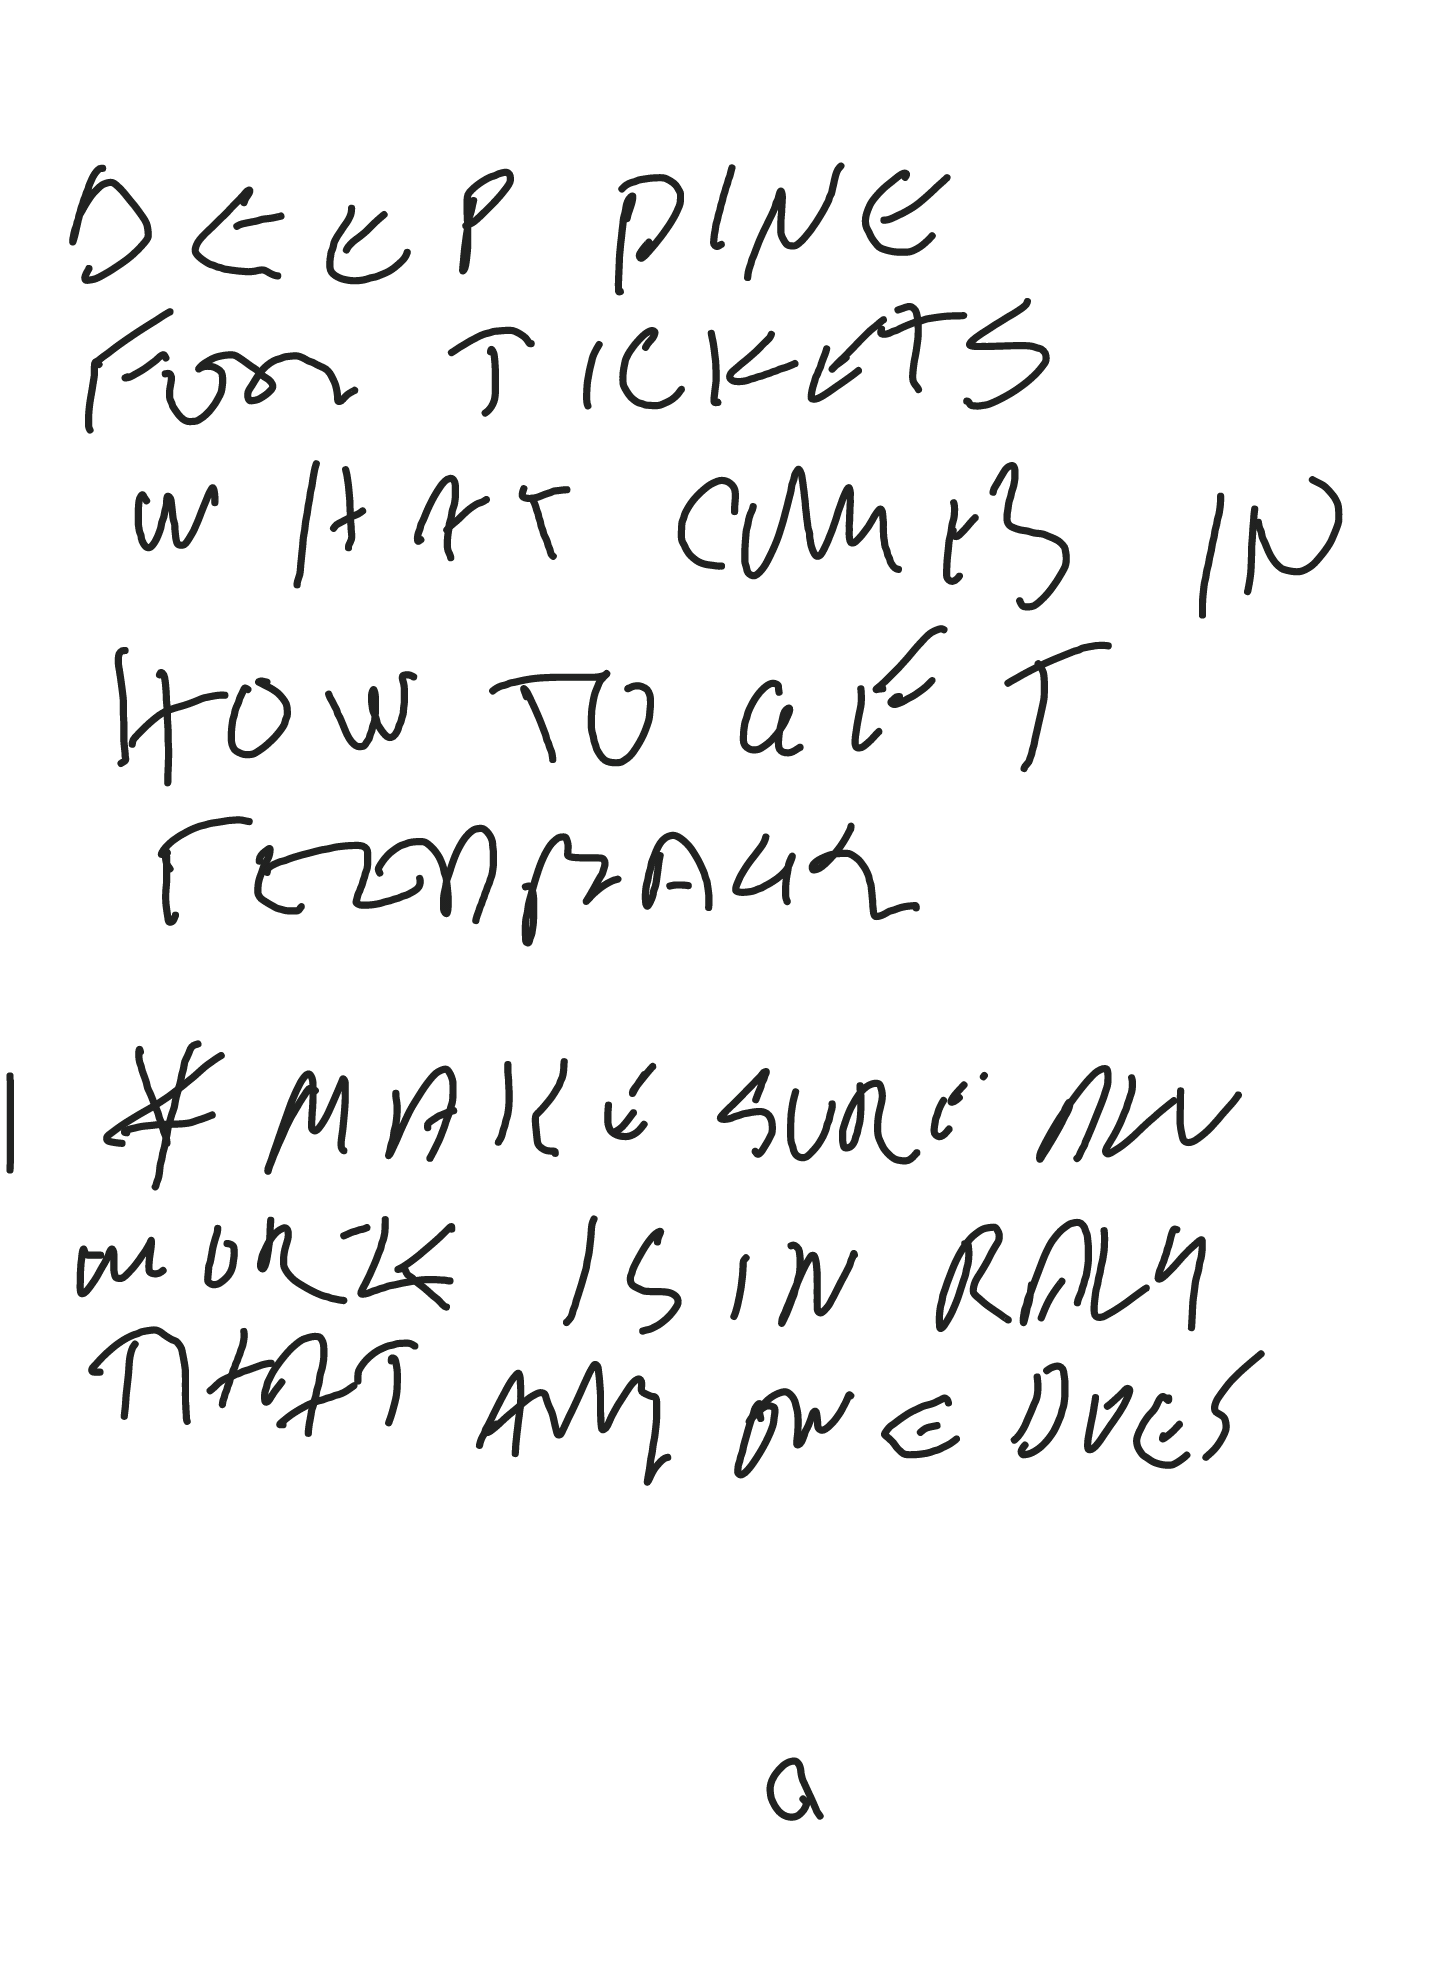 DEEP DINE
FOR TICKETS
WHAT COMES IN
HOW TO GET
FEEDBACK
* MAKE SURE ALL
WORK IS IN RALLY
THAT ANYONE DOES
a